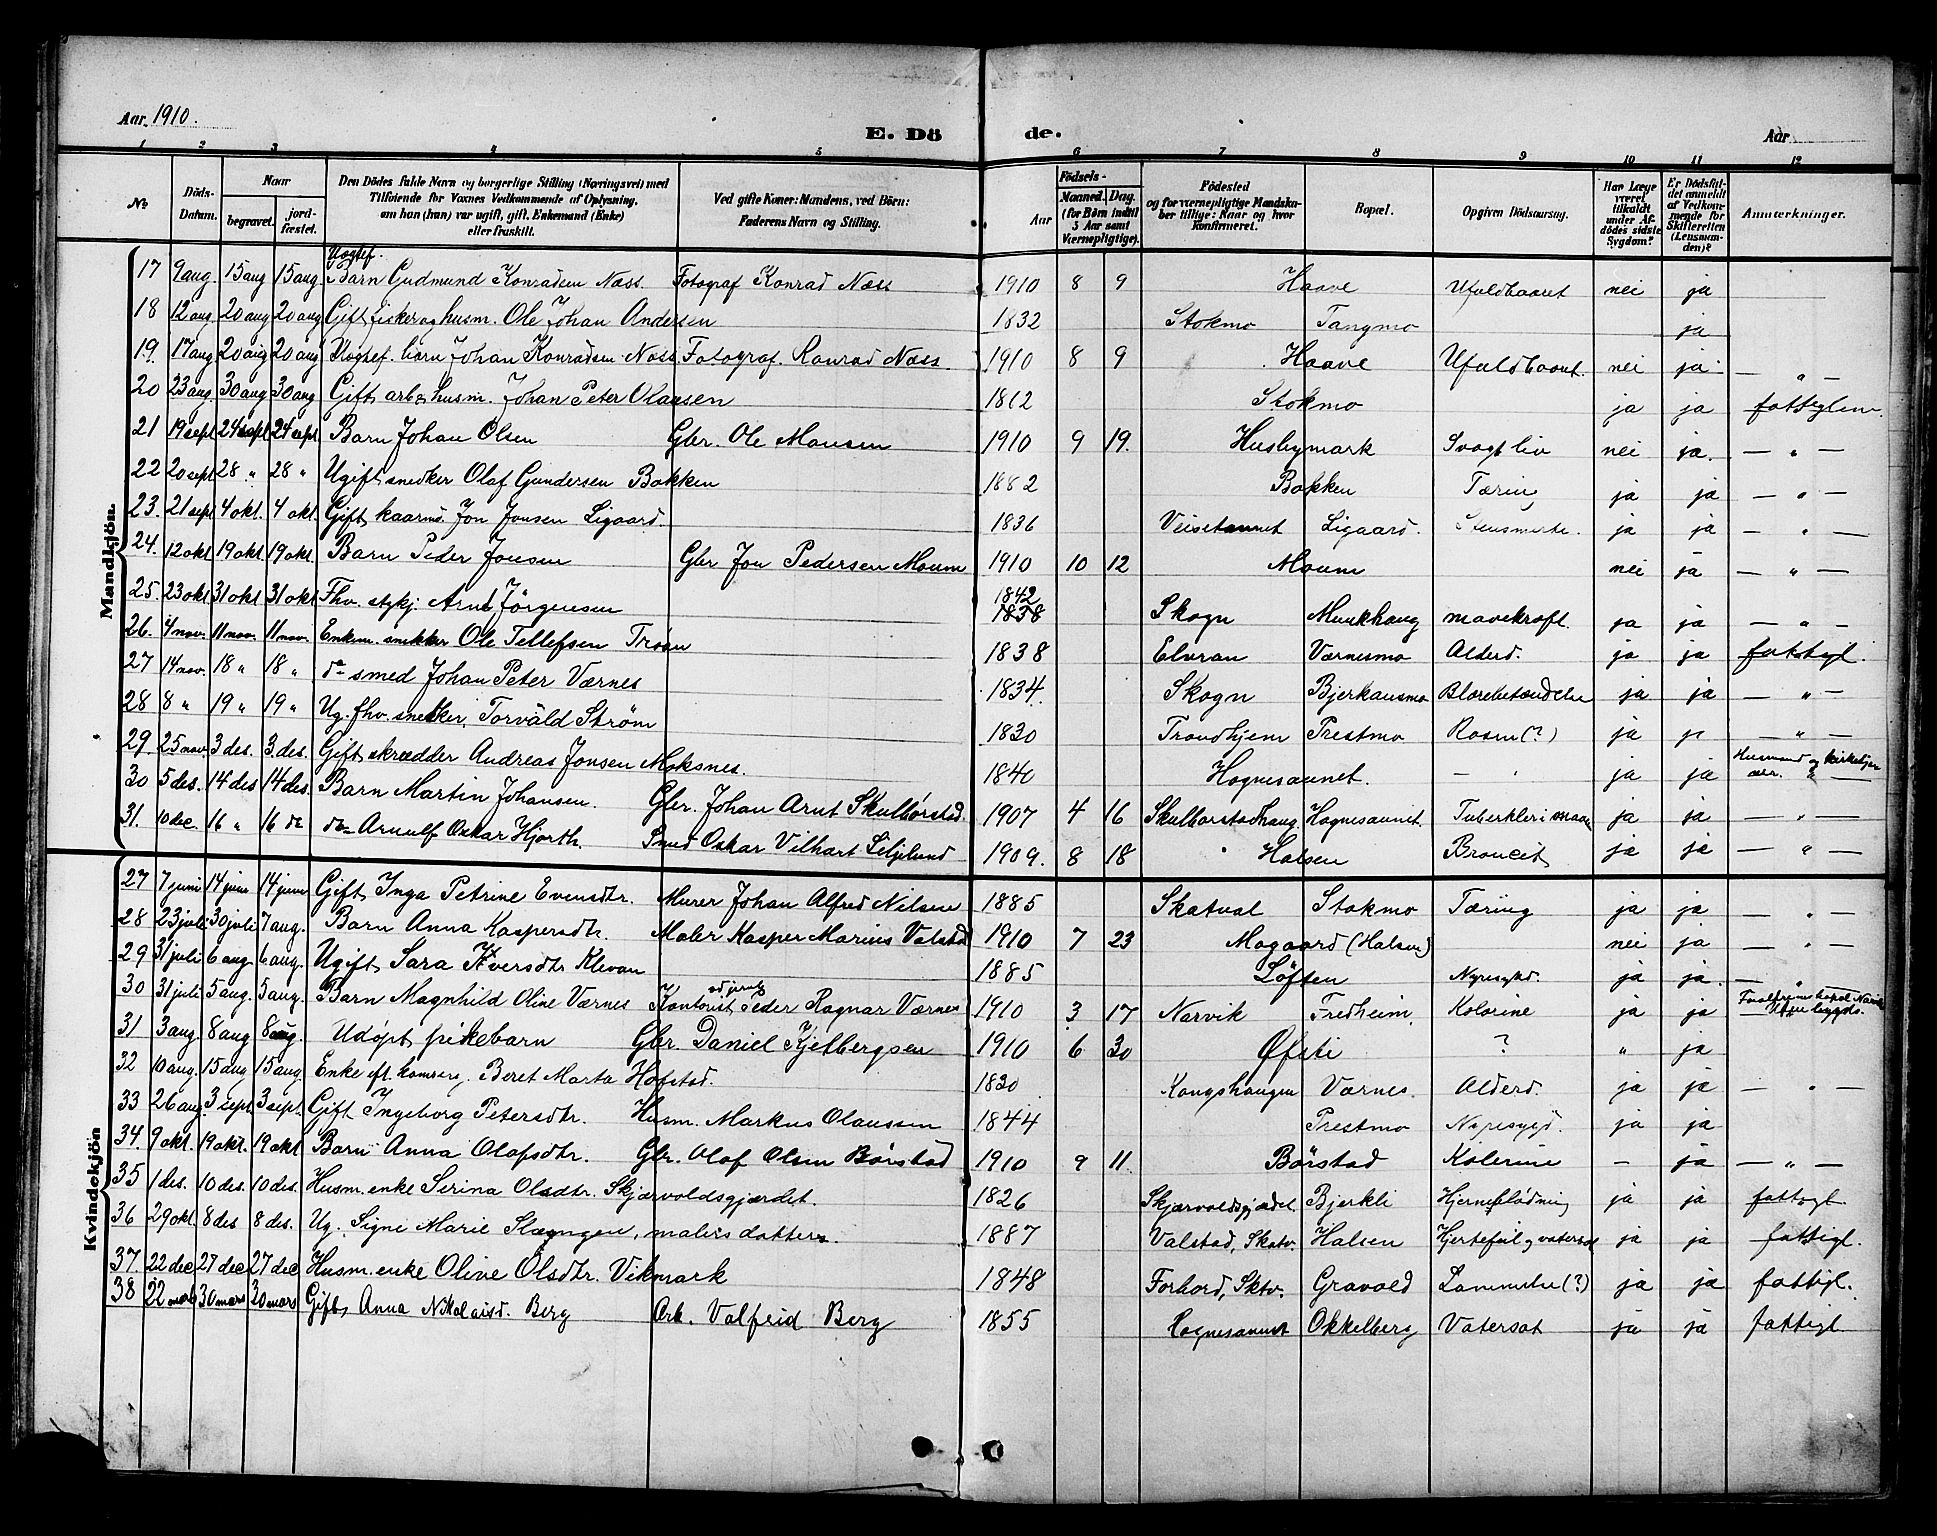 Aar 1910.
E. Dö de.
Aar
1 2 3 4 5 6 7 8 9 10 11 12
No
Döds-Datum.
Naar
begravet.
jord-fæstet.
Den Dödes fulde Navn og borgerlige Stilling (Næringsvei) med
Tilföiende for Voxnes Vedkommende af Oplysning,
om han (hun) var ugift, gift, Enkemand (Enke)
eller fraskilt.
Ved gifte Koner: Mandens, ved Börn:
Faderens Navn og Stilling.
Födsels-
Aar
Maaned. Dag.
(for Börn indtil
5 Aar samt
Værnepligtige).
Födested
og for værnepligtige Mandska-
ber tillige: Naar og hvor
konfirmeret.
Bopæl.
Opgiven Dödsaarsag.
Har Læge
været
tilkaldt
under Af-
dödes sidste
Sygdom?
Er Dödsfal-
det anmeldt
af Vedkom-
mende for
Skifteretten
(Lensman-
den)?
Anmærkninger.
Mandkjön.
Uægtef.
17 9 aug. 15 aug 15 aug Barn Gudmund Konradsen Næss. Fotograf Konrad Næss 1910 8 9 Haave Ufuldbaaret nei ja
18 12 aug 20 aug 20 aug Gift fisker og husm. Ole Johan Andersen 1832 Stokmo Tangmo ja
19. 17 aug 20 aug 20 aug Uægtef. barn Johan Konradsen Næss Fotograf. Konrad Næss. 1910 8 9 Haave Ufuldbaaret. nei ja — " —
20 23 aug. 30 aug 30 aug Gift arb & husm. Johan Peter Olaussen 1862 Stokmo ja ja fattiglem.
21 19 sept 24 sept 24 sept. Barn Johan Olsen Gbr. Ole Monsen 1910 9 19. Husbymark Svagt liv nei ja. — " —
22 20 sept 28 " 28 " Ugift snedker Olaf Gundersen Bakken 1882 Bakken Tæring ja ja — " —
23. 21 sept 4 okt. 4 okt. Gift kaarm. Jon Jonsen Ligaard. 1836 Ligaard. ja ja — " —
24. 12 okt 19 okt. 19 okt. Barn Peder Jonsen Gbr Jon Pedersen Moum 1910 10 12 Moum nei ja — " —
25. 23 okt 31 okt 31 okt Fhv. stykj. Arnt Jörgensen 1842 1838 Skogn Munkhaug mavekræft. ja ja — " —
26. 4 nov. 11 nov. 11 nov. Enkem. snikker Ole Tellefsen Trøan 1838 Elvran Værnesmo Alderd. ja ja fattigl.
27 14 nov. 18 " 18 " do smed Johan Peter Værnes 1834. Skogn Bjerkansmo Blærebetændelse ja ja — " —
28 8 " 19 " 19 " Ug. fhv. snedker, Torvald Strøm 1830 Trondhjem Prestmo Rosen (?) ja ja — " —
29 25 nov. 3 des. 3 des. Gift skrædder Andreas Jonsen Moksnes. 1840 Hognesaunet. — " ja ja Husmand og kirketjen
30 5 des. 14 des 14 des. Barn Martin Johansen. Gbr. Johan Arnt Skulbørstad 1907 4 16 Skulbørstadhaug Hognesaunet. Tuberkler i maven ja ja — " —
31. 10 dec. 16 " 16 do do Arnulf Oskar Hjorth. Smed Oskar Vilhart Liljelund 1909. 8 18 Halsen Broncit ja ja — " —
Kvindekjön
27 7 juni 14 juni 14 juni Gift Inga Petrine Evensdtr. Murer Johan Alfred Nilsen 1885 Skatval Stokmo Tæring ja ja — " —
28 23 juli 30 juli 7 aug. Barn Anna Kaspersdtr. Maler Kasper Marius Valstad 1910 7 23 Mogaard (Halsen) nei ja — " —
29 31 juli 6 aug 6 aug. Ugift Sara Iversdtr Klevan 1885 Løften Nyresykd. ja ja. — " —
30 31 juli 5 aug. 5 aug. Barn Magnhild Oline Værnes Kontorist Peder Ragnar Værnes 1910 3 17 Narvik Fredheim Kolerine ja ja
31 3 aug 8 aug 8 aug. Udøpt pikebarn Gbr. Daniel Kjelbergsen 1910 6 30 Øfsti ? " ja
32 10 aug. 15 aug 15 aug. Enke eft. Beret Marta Hofstad. 1830 Kongshaugen Værnes. Alderd. ja ja — " —
33 26 aug. 3 sept. 3 sept. Gift Ingeborg Petersdtr. Husm. Markus Olaussen 1844 Prestmo Nyresygd. ja ja
34. 9 okt. 19 okt. 19 okt Barn Anna Olafsdtr. Gbr. Olaf Olsen Børstad 1910 9 11. Børstad Kolerine — ja — " —
35 1 des. 10 des. 10 des. Husm. enke Serina Olsdtr. Skjærvoldsgjærdet. 1826 Skjærvoldsgjærdet Bjerkli Hjerneblødning ja ja fattigl
36 29 okt 8 des 8 des. Ug. Signe Marie malers datter 1887 Valstad, Skatv. Halsen Hjertefeil og vatersot ja ja fattigl.
37. 22 dec 27 dec 27 dec Husm. enke Oline Olsdtr. Vikmark 1848 Forbord, Sktv. Gravold Lammelse (?) ja ja fattigl.
38 22 mars 30 mars 30 mars Gift Anna Nikolaisd. Berg Arb. Valfrid Berg 1855 Hognesaunet Okkelberg Vatersot ja ja fattigl